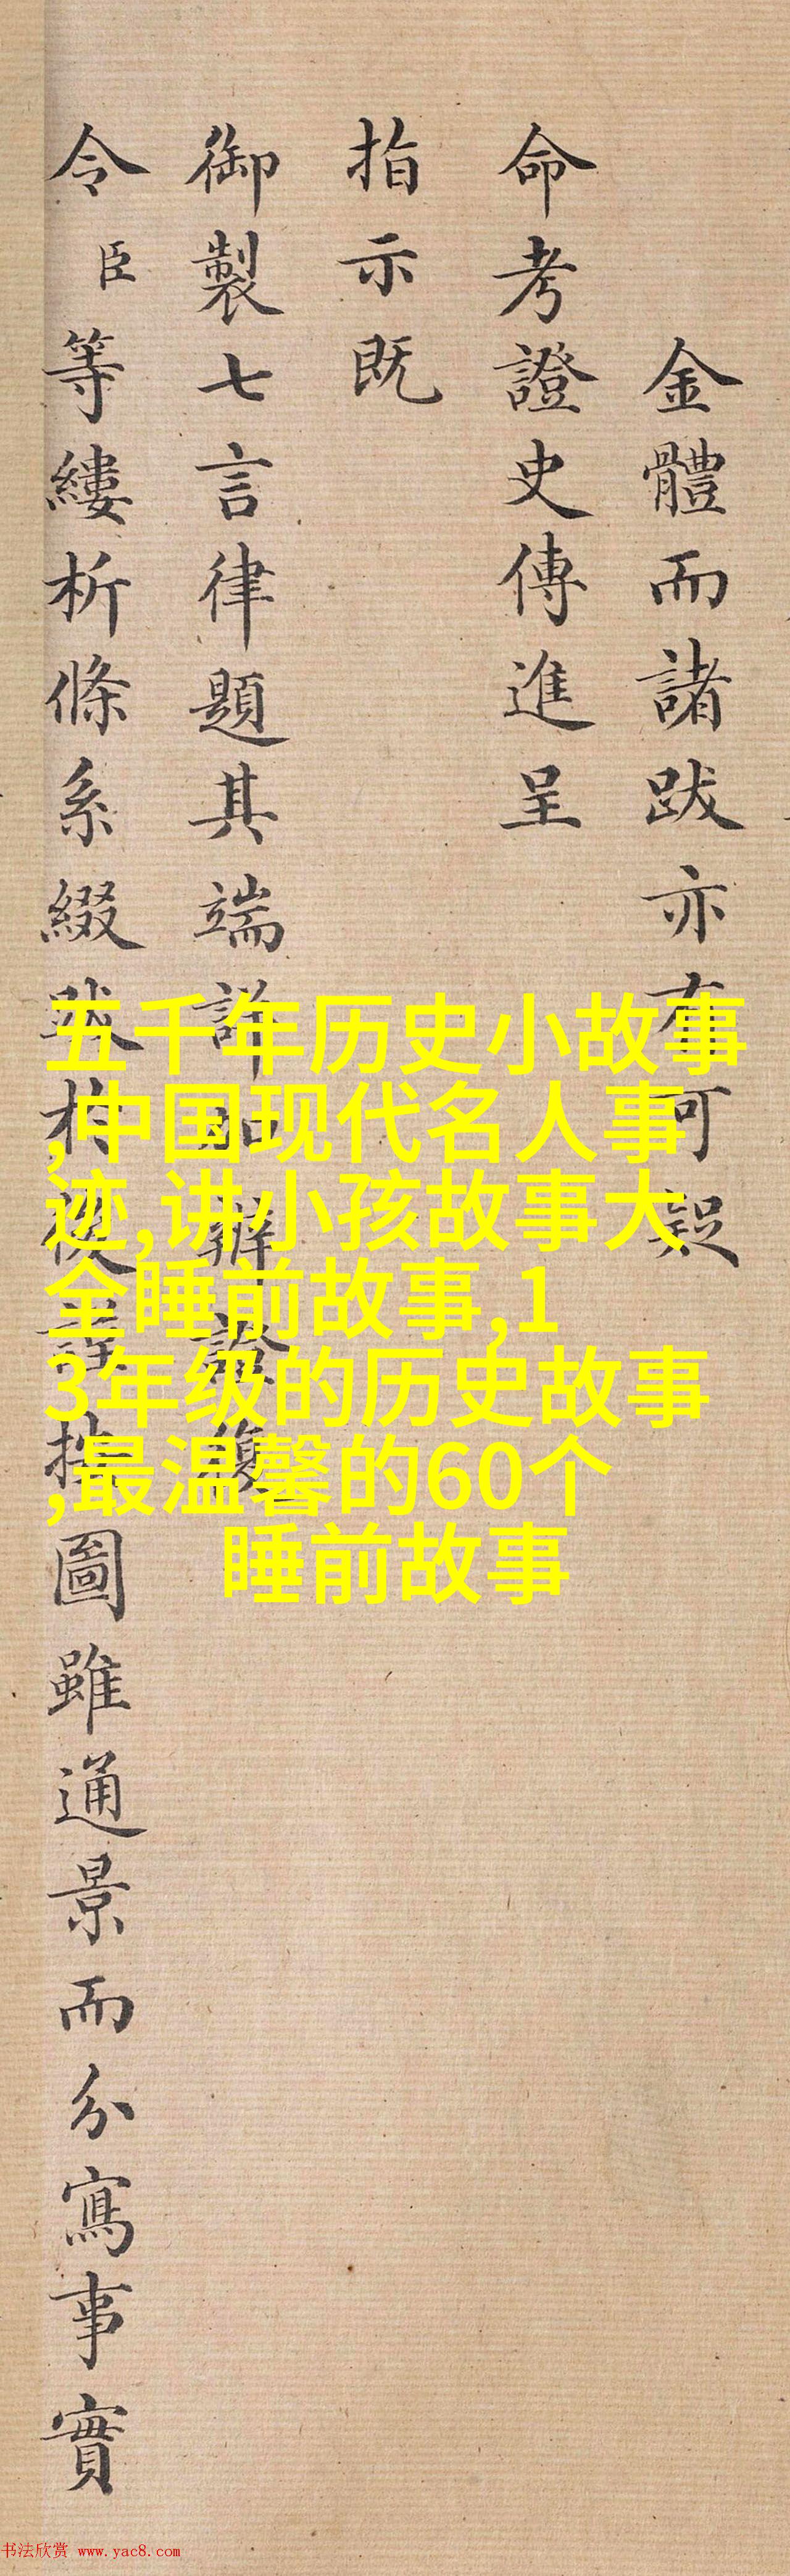 金體而諸跋亦有可疑
命考證史傳進呈
指示既
御製七言律題其端詳加辦證復
令臣等縷析條系綴跋於後註拙圖雖通景而分寫事實
五千年历史小故事
,中国现代名人事
迹,讲小孩故事大
全睡前故事,1
3年级的历史故事
,最温馨的60个
睡前故事
书法欣赏 www.yac8.com